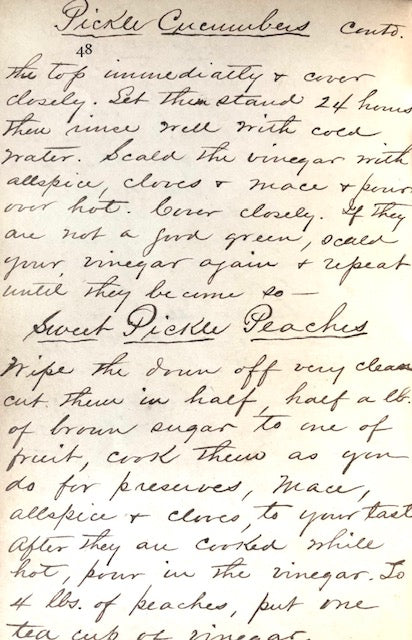 Pickle Cucumbers contd.
48
the top immediatly & cover
closely. Let them stand 24 hours
then rince well with cold
water. Scald the vinegar with
allspice, cloves & mace & pour
over hot. Cover closely. If they
are not a good green, scald
your vinegar again & repeat
until they become so —
Sweet Pickle Peaches
Wipe the down off very clean
cut them in half, half a lb.
of brown sugar to one of
fruit, cook them as you
do for preserves, mace,
allspice & cloves, to your tast
After they are cooked while
hot, pour in the vinegar. To
4 lbs. of peaches, put one
tea cup of vinegar.